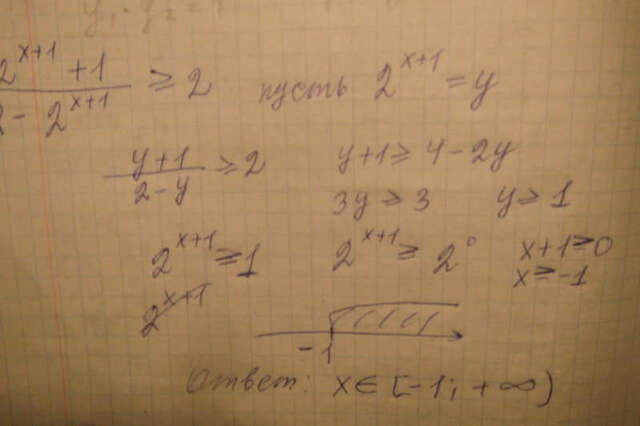 y₁ · y₂ =
(2^(x+1) + 1)/(2 - 2^(x+1)) ≥ 2 пусть 2^(x+1) = y
(y+1)/(2-y) ≥ 2 y+1 ≥ 4-2y
3y ≥ 3 y ≥ 1
2^(x+1) ≥ 1 2^(x+1) ≥ 2^0 x+1 ≥ 0
x ≥ -1
2^(x+1)
-1
Ответ: x ∈ [-1; +∞)